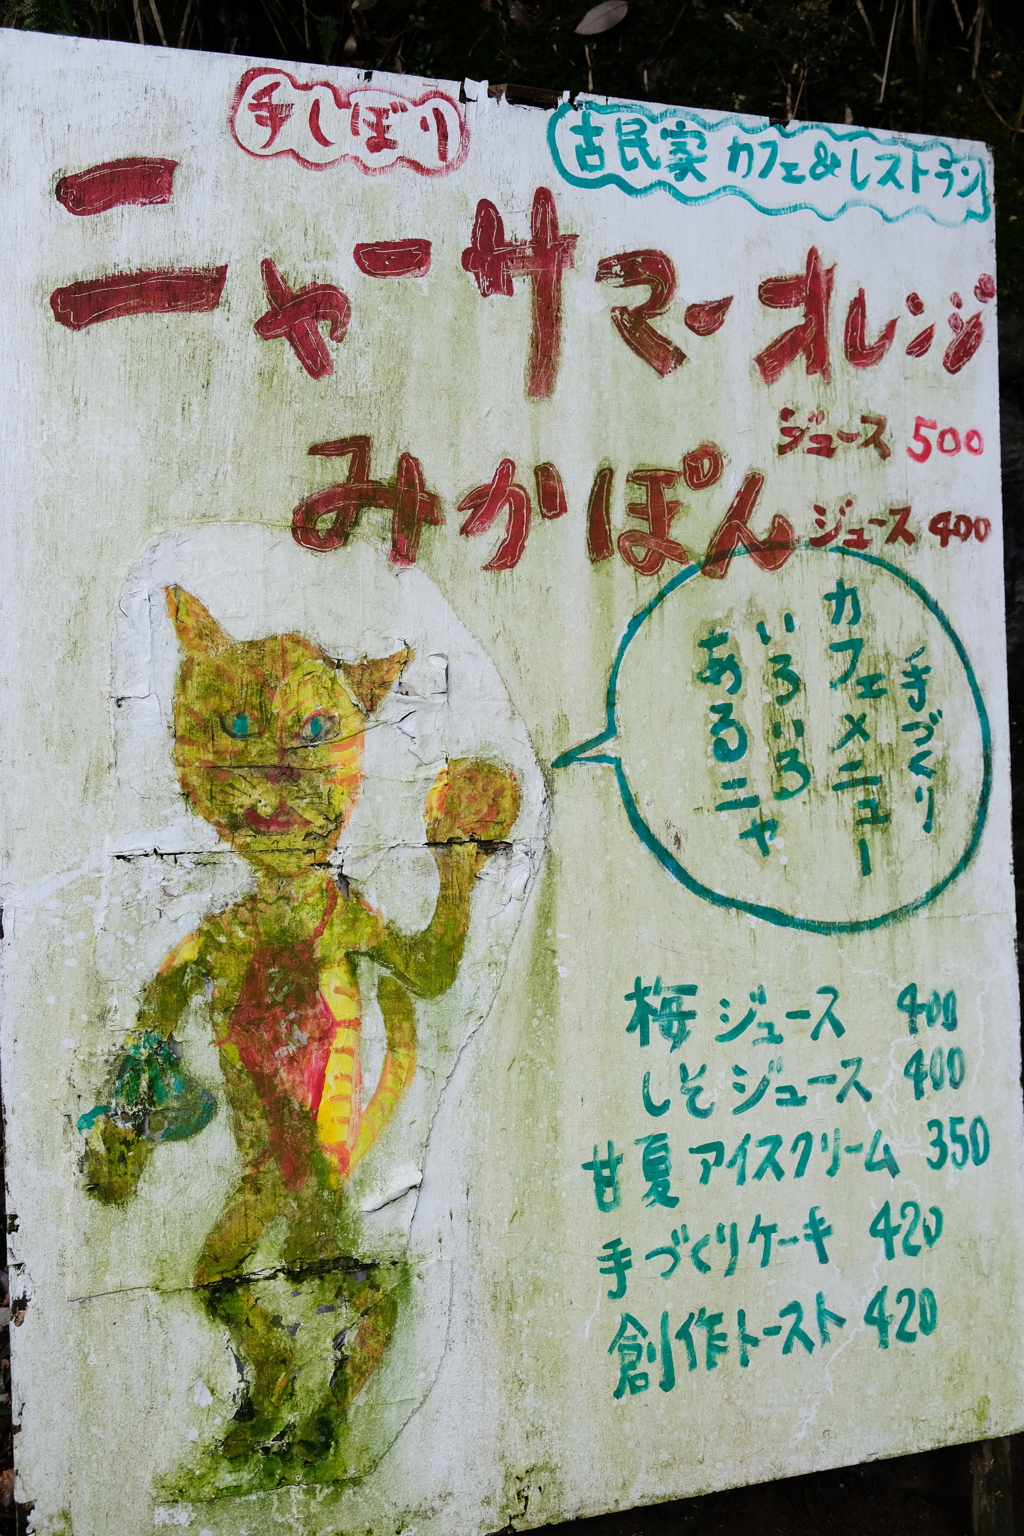 手しぼり
古民家 カフェ&レストラン
ニャーサマーオレンジ
ジュース 500
みかぽん ジュース 400
手づくり
カフェメニュー
いろいろ
あるニャ
梅ジュース 400
しそジュース 400
甘夏アイスクリーム 350
手づくりケーキ 420
創作トースト 420